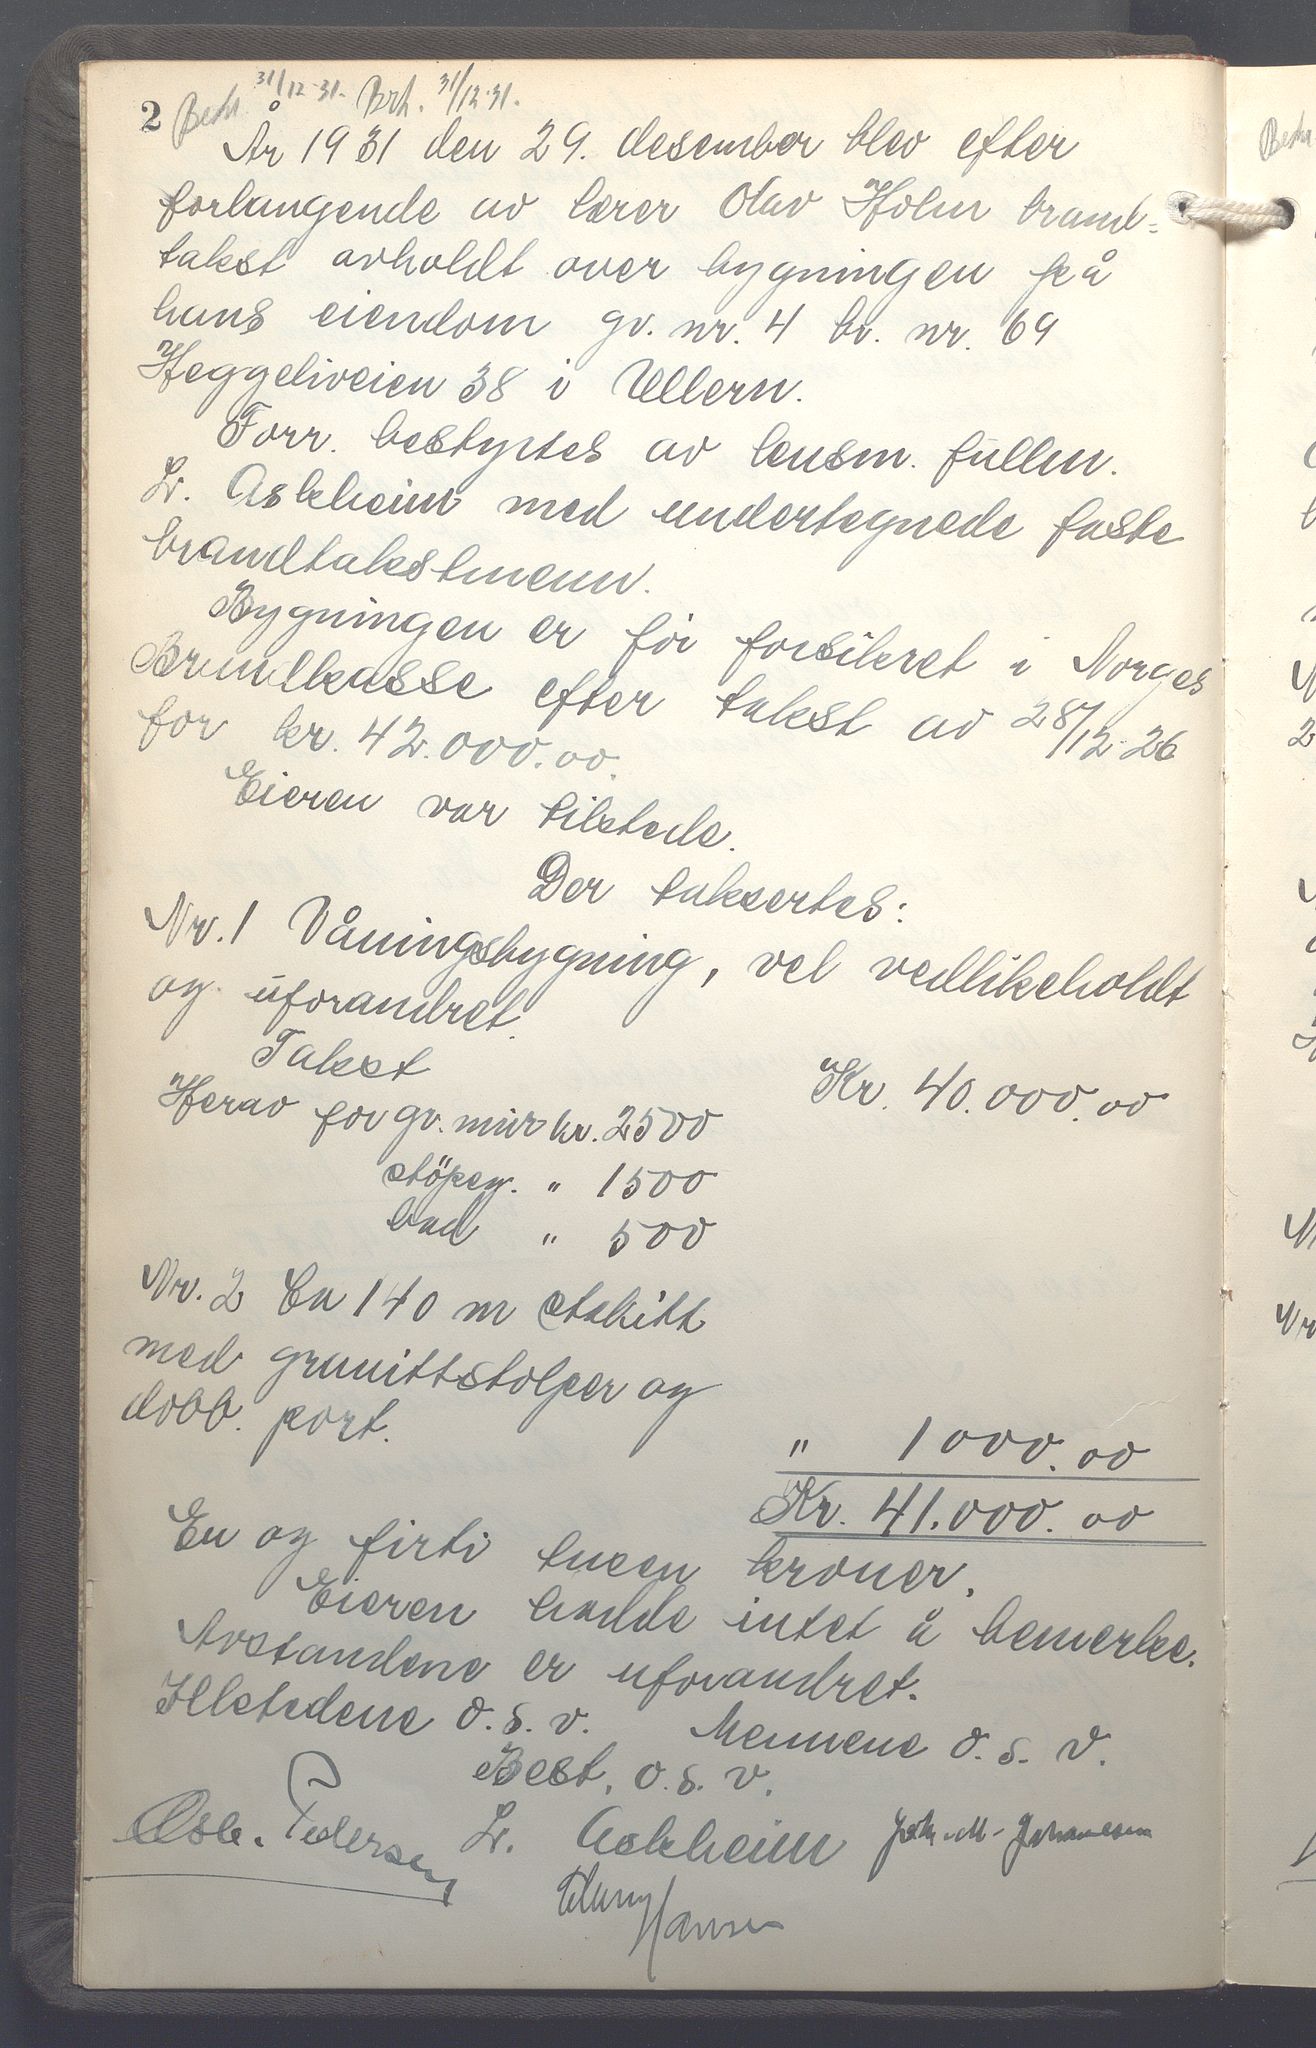 2 Besk. 31/12-31. Brk. 31/12.31.
År 1931 den 29. desember blev efter
forlangende av lærer Olav Holm brand=
takst avholdt over bygningen på
hans eiendom gr. nr. 4 br. nr. 69
Heggeliveien 38 i Ullern.
Forr. bestyrtes av lensm. fullm.
Lr. Askheim med undertegnede faste
brandtakstmenn.
Bygningen er før forsikret i Norges
Brandkasse efter takst av 28/12-26
for kr. 42.000.00.
Eieren var tilstede.
Der taksertes:
Nr. 1 Våningsbygning, vel vedlikeholdt
og uforandret.
Takst Kr. 40.000.00
Herav for gr. mür kr. 2500
støpeg. " 1500
bad " 500
Nr. 2 Ca 140 m stakitt
med granittstolper og
dobb. port.
" 1000.00
Kr. 41.000.00
En og firti tusen kroner.
Eieren hadde intet å bemerke.
Avstandene er uforandret.
Ildstedene o.s.v. Mennene o.s.v.
Best. o.s.v.
Osc. Pedersen Lr. Askheim Joh. M. Johannesen
Hansen